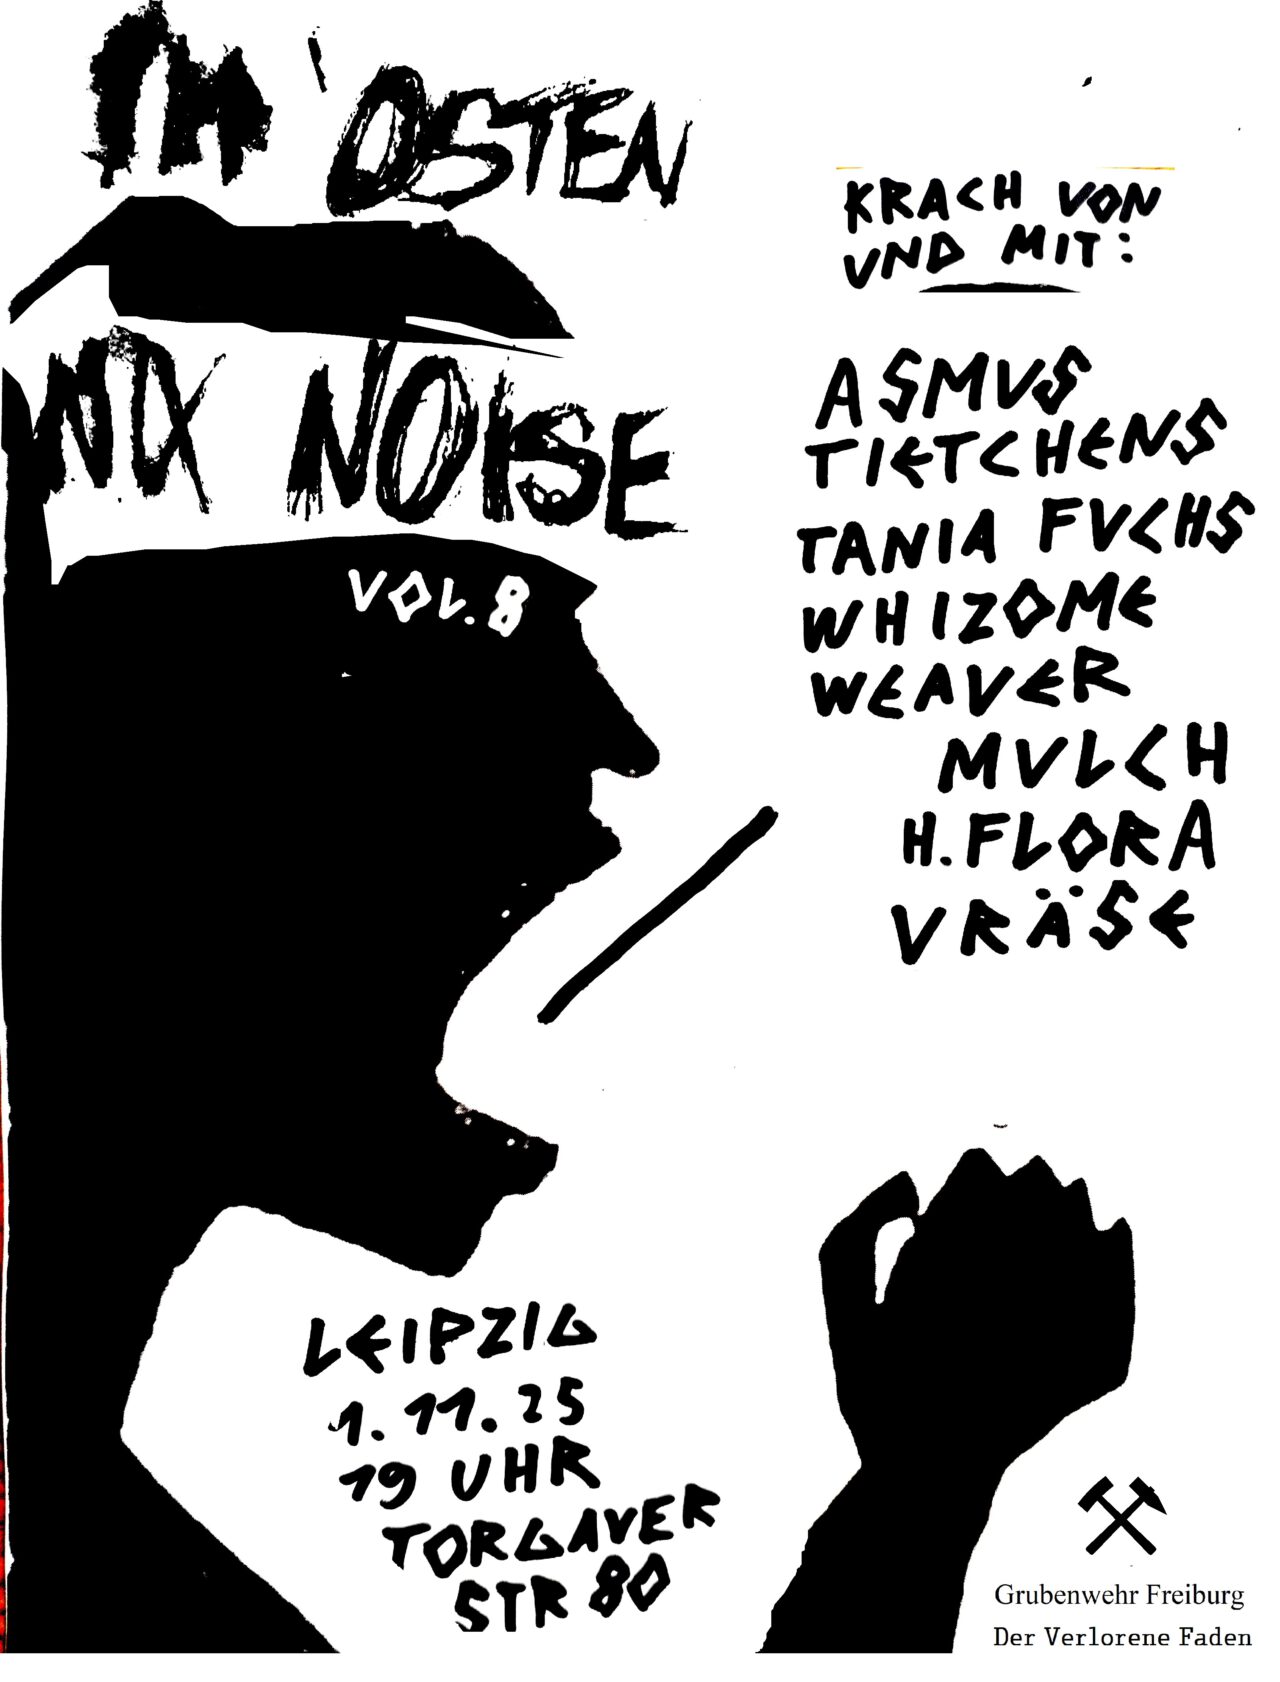 IM OSTEN
NIX NOISE
VOL. 8
KRACH VON
VND MIT:
ASMVS
TIETCHENS
TANIA FVCHS
WHIZOME
WEAVER
MVLCH
H. FLORA
VRÄSE
LEIPZIG
1. 11. 25
19 UHR
TORGAVER
STR 80
Grubenwehr Freiburg
Der Verlorene Faden